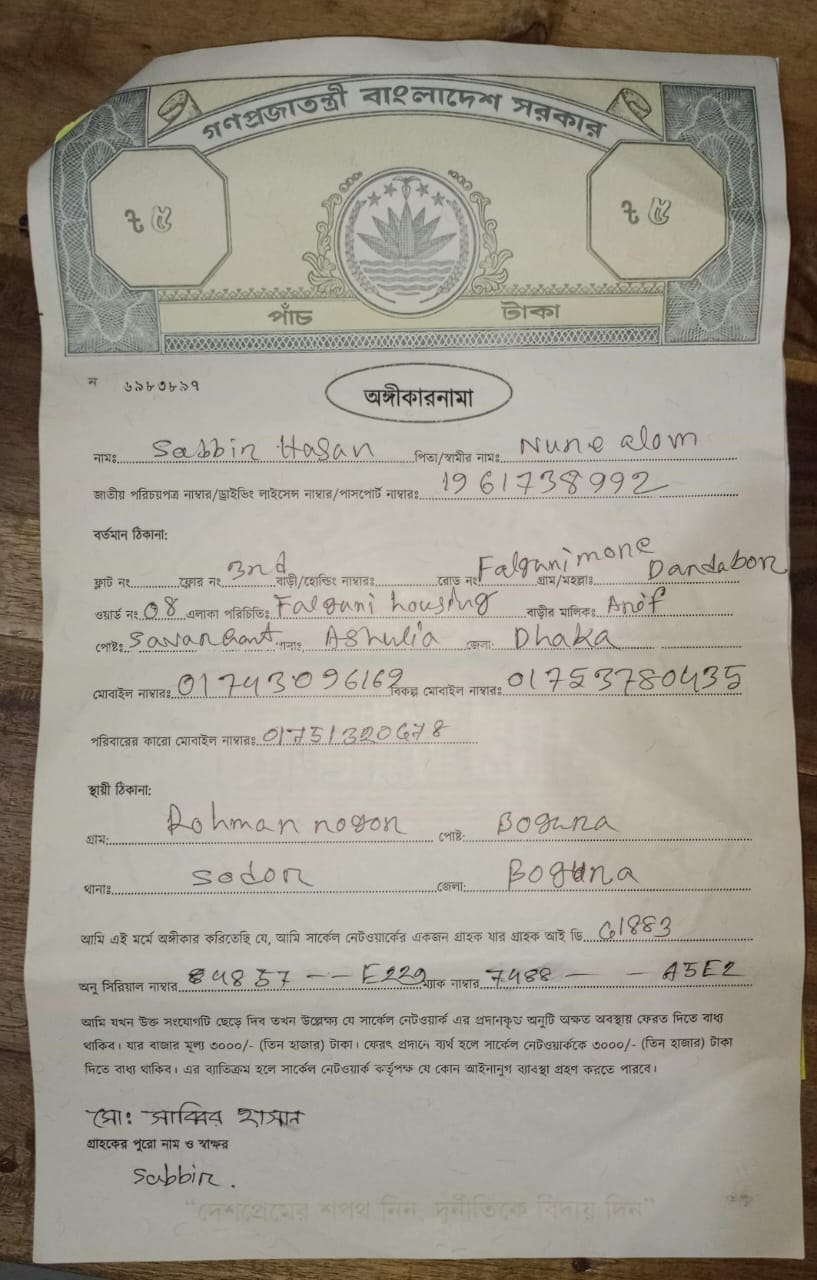 গণপ্রজাতন্ত্রী বাংলাদেশ সরকার
৳ ৫ ৳ ৫
পাঁচ টাকা
ন ৬৯৮৩৮৯৭
অঙ্গীকারনামা
নামঃ Sabbir Hasan পিতা/স্বামীর নামঃ Nure alom
জাতীয় পরিচয়পত্র নাম্বার/ড্রাইভিং লাইসেন্স নাম্বার/পাসপোর্ট নাম্বারঃ 1961738992
বর্তমান ঠিকানা:
ফ্লাট নং ফ্লোর নং 3nd বাড়ী/হোল্ডিং নাম্বারঃ রোড নং Falguni more গ্রাম/মহল্লাঃ Dandabor
ওয়ার্ড নং 08 এলাকা পরিচিতিঃ Falguni housing বাড়ীর মালিকঃ Arif
পোষ্টঃ থানাঃ Ashulia জেলা: Dhaka
মোবাইল নাম্বারঃ 01743096162 বিকল্প মোবাইল নাম্বারঃ 01753780435
পরিবারের কারো মোবাইল নাম্বারঃ 01751320678
স্থায়ী ঠিকানা:
গ্রাম: Rohman nogor পোষ্ট: Bogura
থানাঃ Sodor জেলা: Bogura
আমি এই মর্মে অঙ্গীকার করিতেছি যে, আমি সার্কেল নেটওয়ার্কের একজন গ্রাহক যার গ্রাহক আই ডি G1883
অনু সিরিয়াল নাম্বার 84857 -- E229 ম্যাক নাম্বার 7488 - - A5E2
আমি যখন উক্ত সংযোগটি ছেড়ে দিব তখন উল্লেক্ষ্য যে সার্কেল নেটওয়ার্ক এর প্রদানকৃত অনুটি অক্ষত অবস্থায় ফেরত দিতে বাধ্য
থাকিব। যার বাজার মূল্য ৩০০০/- (তিন হাজার) টাকা। ফেরৎ প্রদানে ব্যর্থ হলে সার্কেল নেটওয়ার্ককে ৩০০০/- (তিন হাজার) টাকা
দিতে বাধ্য থাকিব। এর ব্যতিক্রম হলে সার্কেল নেটওয়ার্ক কর্তৃপক্ষ যে কোন আইনানুগ ব্যবস্থা গ্রহণ করতে পারবে।
মো: সাব্বির হাসান
গ্রাহকের পুরো নাম ও স্বাক্ষর
Sabbir.
“দেশপ্রেমের শপথ নিন, দুর্নীতিকে বিদায় দিন”